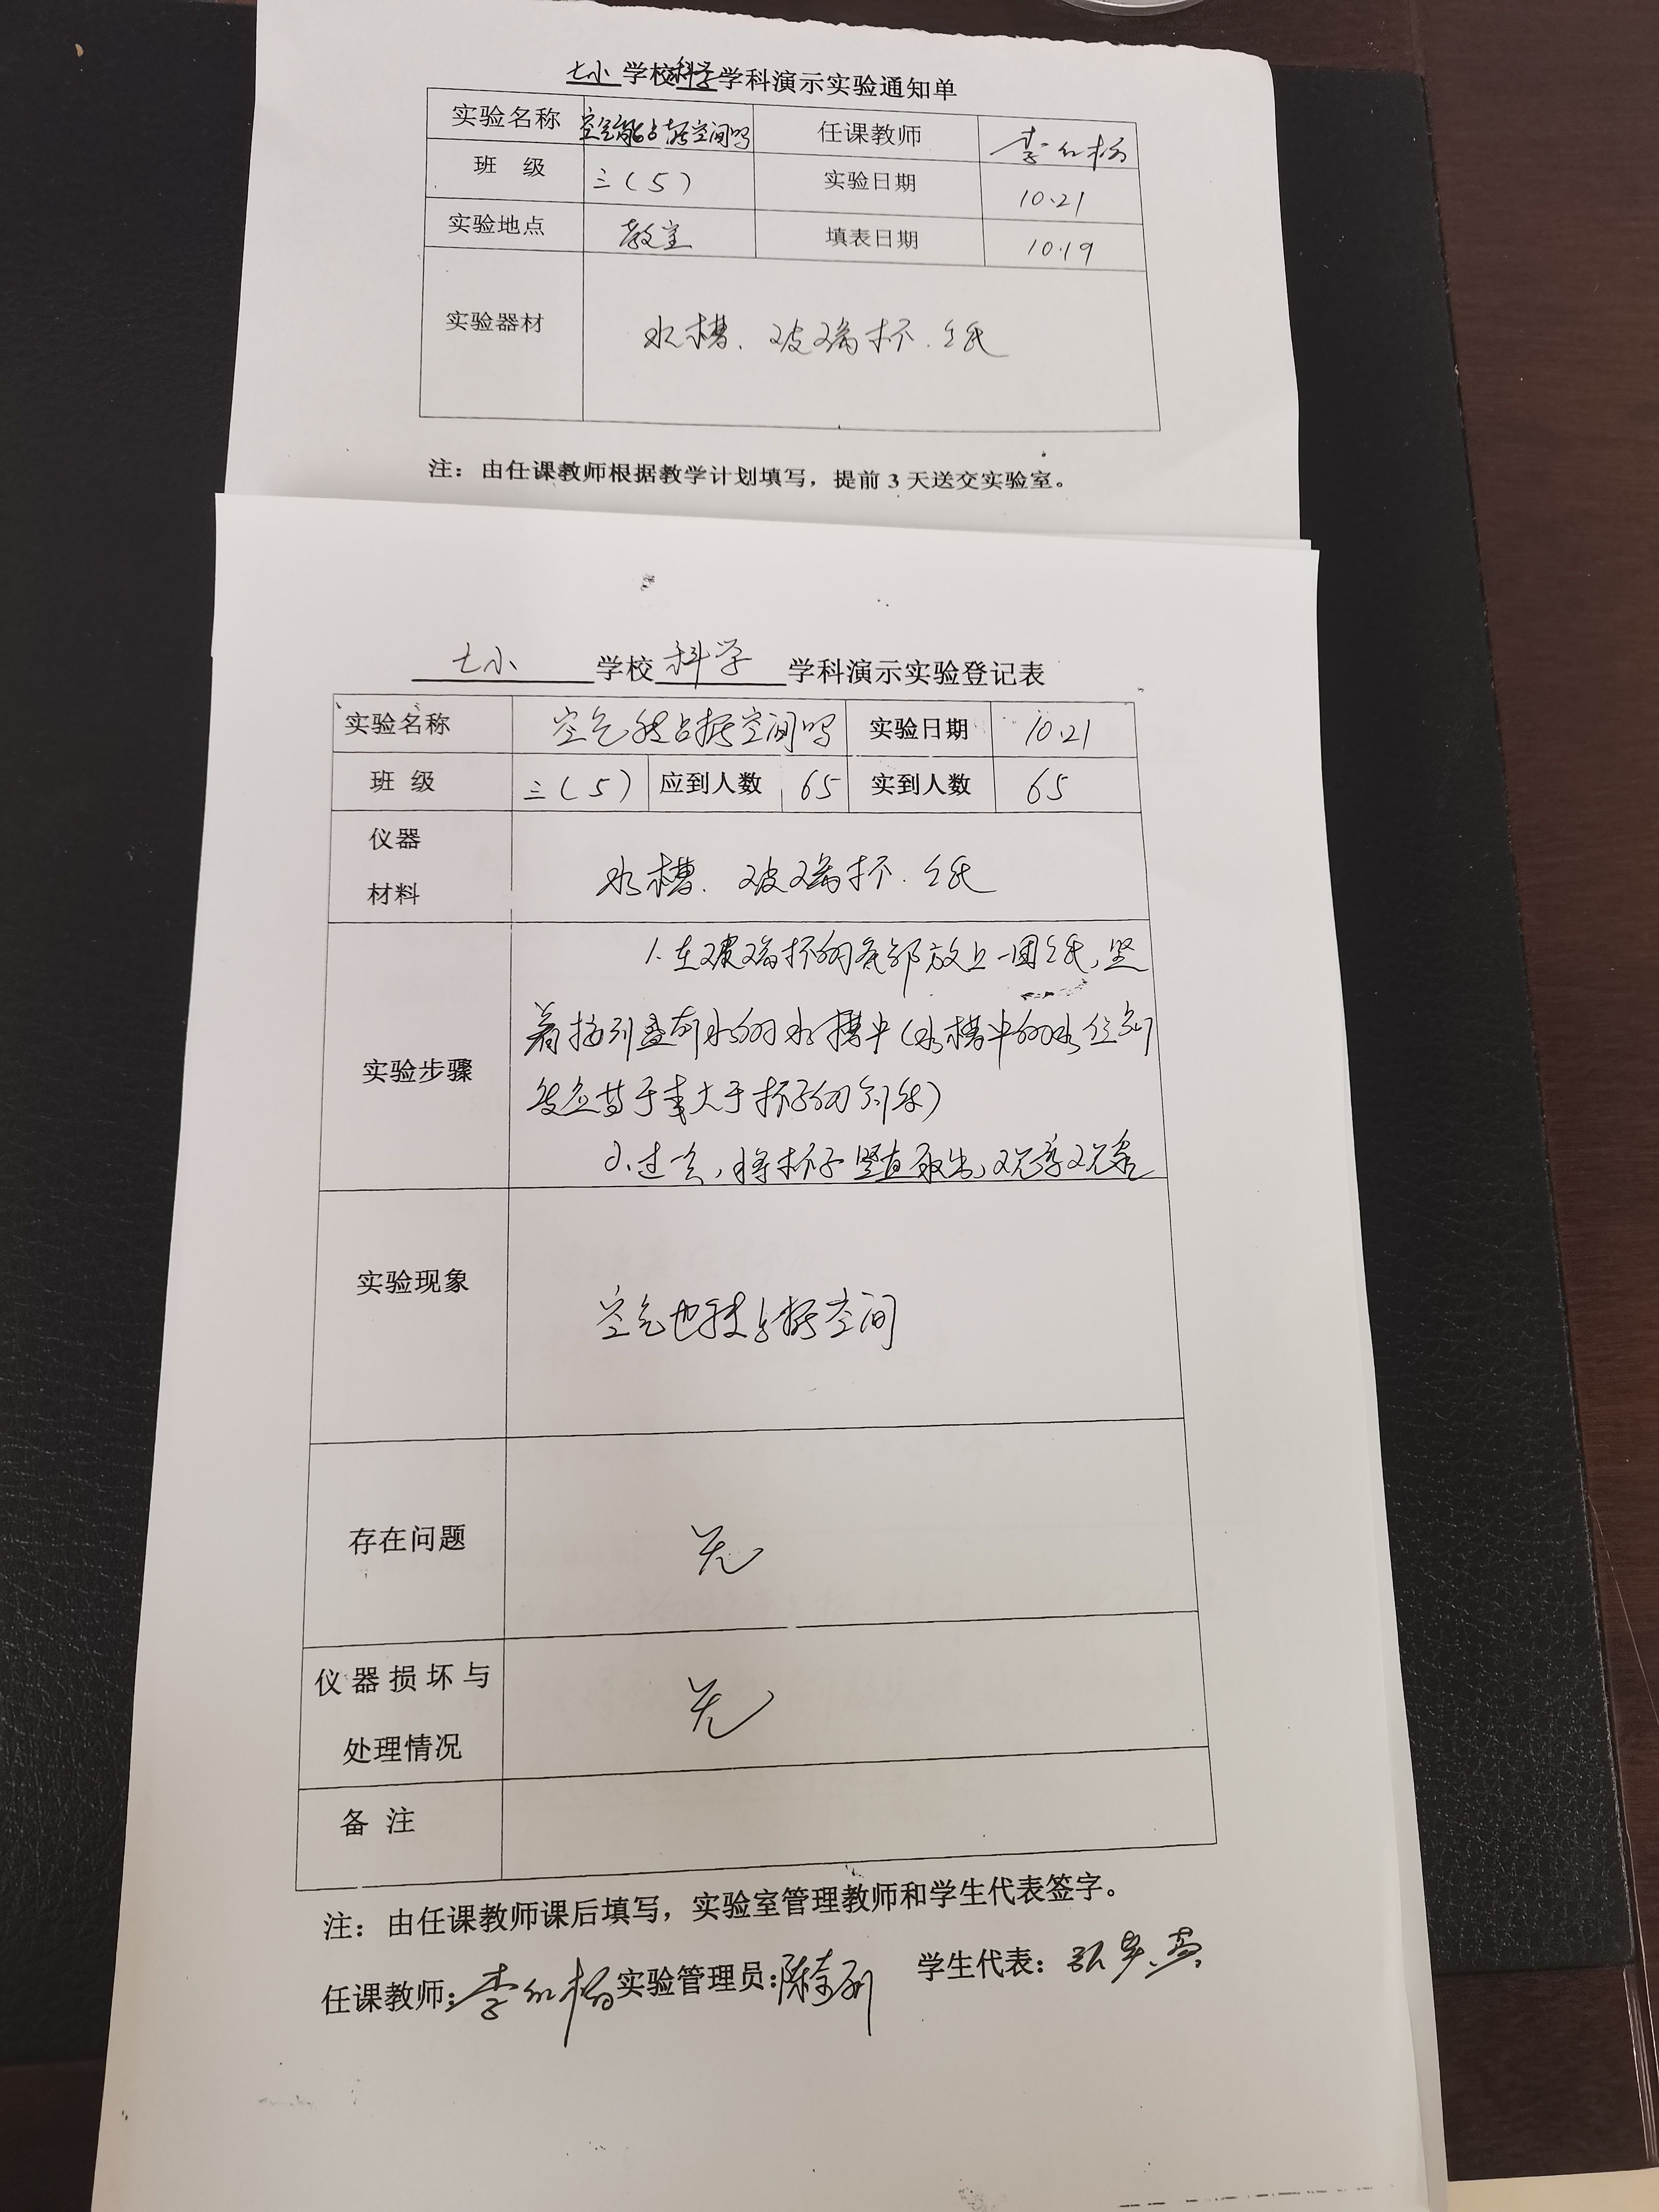 七小 学校 科学 学科演示实验通知单
实验名称 空气能占据空间吗 任课教师 李红杨
班 级 三（5） 实验日期 10.21
实验地点 教室 填表日期 10.19
实验器材 水槽、玻璃杯、纸
注：由任课教师根据教学计划填写，提前 3 天送交实验室。
七小 学校 科学 学科演示实验登记表
实验名称 空气能占据空间吗 实验日期 10.21
班 级 三（5） 应到人数 65 实到人数 65
仪器
材料
水槽、玻璃杯、纸
实验步骤
1、在玻璃杯的底部放上一团纸，竖
着按到盛有水的水槽中（水槽中的水位
等于或大于杯子的
2、过会，将杯子竖直取出，观察现象
实验现象
空气也能占据空间
存在问题 无
仪器损坏与
处理情况
无
备 注
注：由任课教师课后填写，实验室管理教师和学生代表签字。
任课教师：李红杨 实验管理员：陈 学生代表：